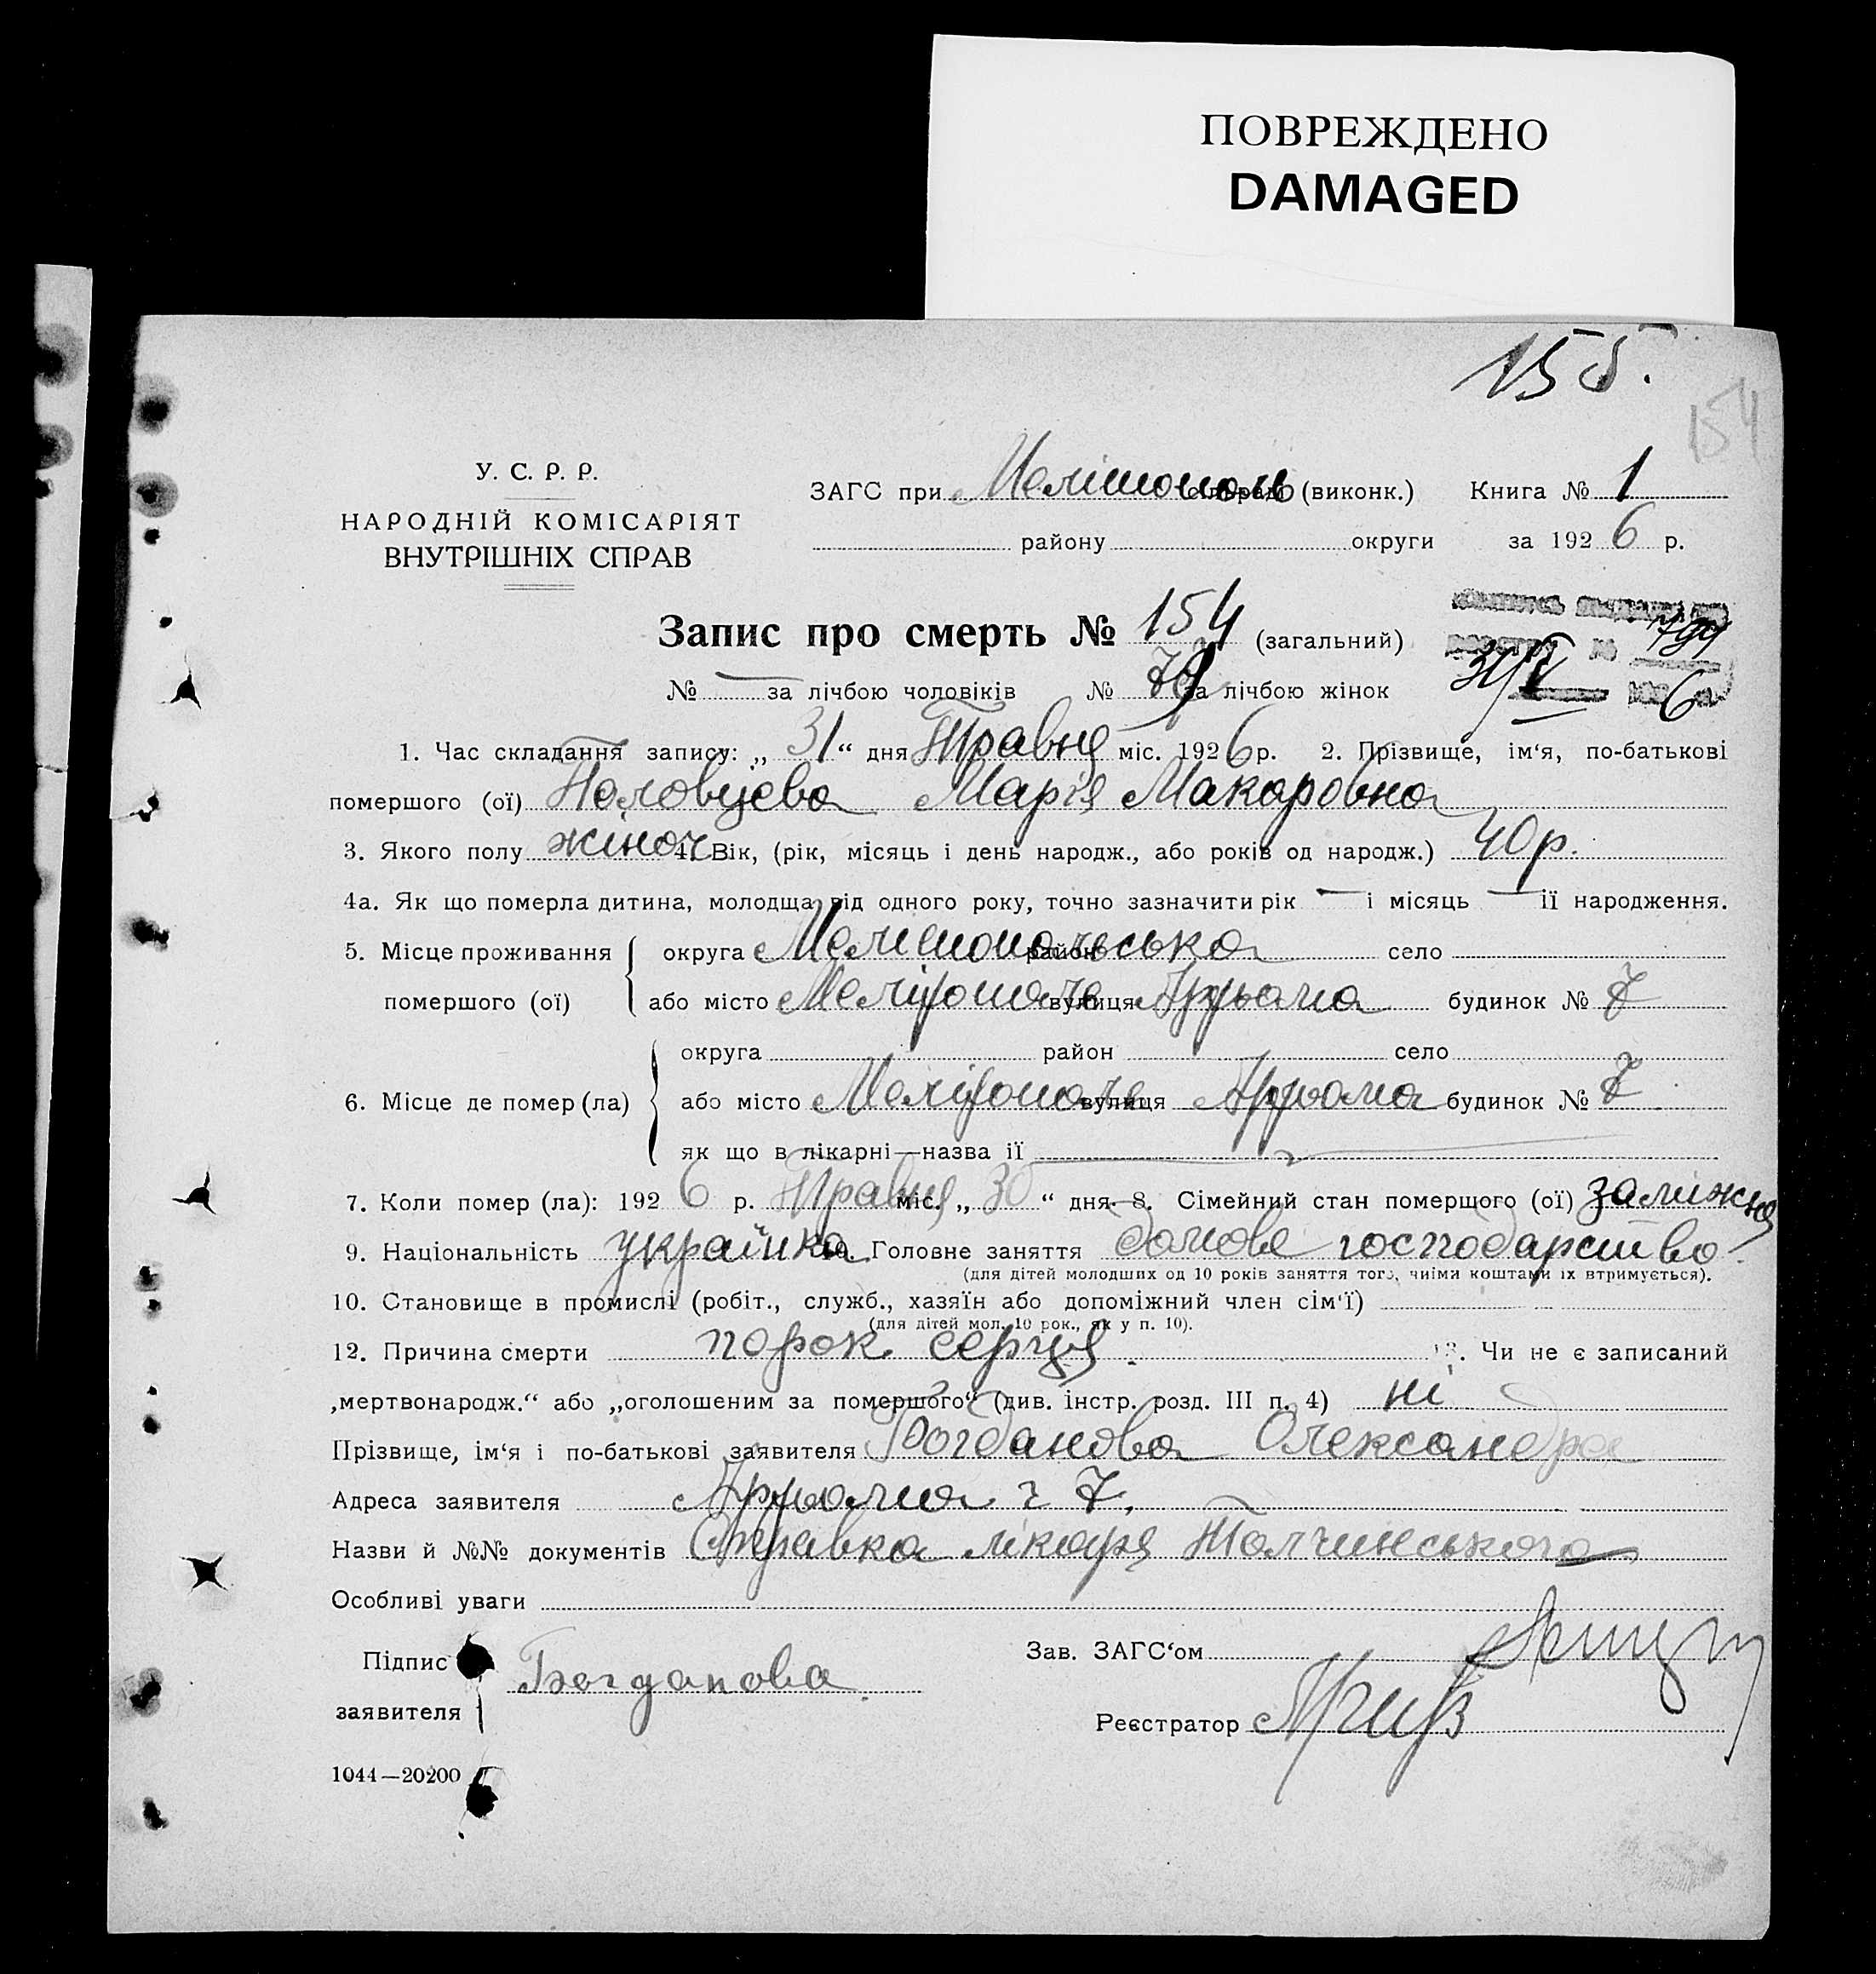 ПОВРЕЖДЕНО
DAMAGED
155.
154
У. С. Р. Р.
НАРОДНІЙ КОМІСАРІЯТ
ВНУТРІШНІХ СПРАВ
ЗАГС при Мелітополь сільраді (виконк.) Книга № 1
району округи за 1926 р.
Запис про смерть № 154 (загальний)
№ — за лічбою чоловіків № 79 за лічбою жінок
31/V 6
1. Час складання запису: „31“ дня Травня міс. 1926 р. 2. Прізвище, ім‘я, по-батькові
помершого (ої) Половцева Марія Макаровна
3. Якого полу жіноч 4. Вік, (рік, місяць і день народж., або років од народж.) 40 р.
4а. Як що померла дитина, молодща від одного року, точно зазначити рік — і місяць — її народження.
5. Місце проживання округа Мелітопольська район село
помершого (ої) або місто Мелітополь вулиця будинок № 7
округа район село
6. Місце де помер (ла) або місто Мелітополь вулиця будинок № 7
як що в лікарні—назва її
7. Коли помер (ла): 1926 р. Травня міс. „30“ дня. 8. Сімейний стан померщого (ої) заміжня
9. Національність українка Головне заняття домове господарство
(для дітей молодших од 10 років заняття того, чиїми коштами їх втримується).
10. Становище в промислі (робіт., служб., хазяїн або допоміжний член сім‘ї)
(для дітей мол. 10 рок., як у п. 10).
12. Причина смерти порок серця. 13. Чи не є записаний
„мертвонародж.“ або „оголошеним за помершого“ (див. інстр. розд. III п. 4) ні
Прізвище, ім‘я і по-батькові заявителя Богданова Олександра
Адреса заявителя 7.
Назви й №№ документів Справка лікаря Толчинського
Особливі уваги
Підпис заявителя Богданова
Зав. ЗАГС‘ом
Реєстратор
1044—20200